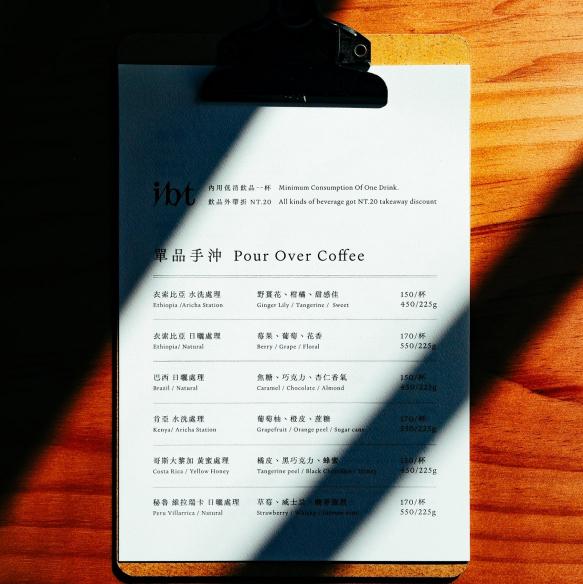 內用低消飲品一杯 Minimum Consumption Of One Drink.
飲品外帶折 NT.20 All kinds of beverage got NT.20 takeaway discount
單品手沖 Pour Over Coffee
衣索比亞 水洗處理 野薑花、柑橘、甜感佳 150/杯
Ethiopia /Aricha Station Ginger Lily / Tangerine / Sweet 450/225g
衣索比亞 日曬處理 莓果、葡萄、花香 170/杯
Ethiopia/ Natural Berry / Grape / Floral 550/225g
巴西 日曬處理 焦糖、巧克力、杏仁香氣 150/杯
Brazil / Natural Caramel / Chocolate / Almond 450/225g
肯亞 水洗處理 葡萄柚、橙皮、蔗糖 170/杯
Kenya/ Aricha Station Grapefruit / Orange peel / Sugar cane 550/225g
哥斯大黎加 黃蜜處理 橘皮、黑巧克力、蜂蜜 150/杯
Costa Rica / Yellow Honey Tangerine peel / Black Chocolate / Honey 450/225g
秘魯 維拉瑞卡 日曬處理 草莓、威士忌、 170/杯
Peru Villarrica / Natural Strawberry / Whisky / 550/225g